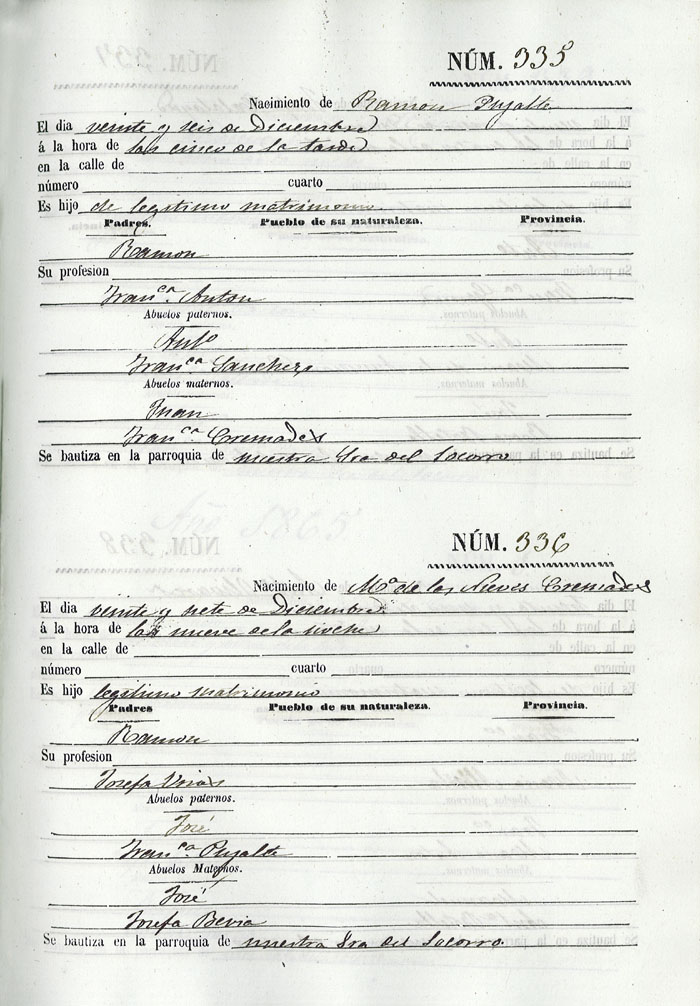 NÚM. 335
Nacimiento de Ramon Pujalte
El dia veinte y seis de Diciembre
á la hora de las cinco de la tarde
en la calle de
número cuarto
Es hijo de legitimo matrimonio
Padres. Pueblo de su naturaleza. Provincia.
Ramon
Su profesion
Fran.ca Anton
Abuelos paternos.
Ant.o
Fran.ca Sanchez
Abuelos maternos.
Juan
Fran.ca Cremades
Se bautiza en la parroquia de nuestra Sra del Socorro
Año 1865
NÚM. 336
Nacimiento de M.a de las Nieves Cremades
El dia veinte y siete de Diciembre
á la hora de las nueve de la noche
en la calle de
número cuarto
Es hijo legitimo matrimonio
Padres Pueblo de su naturaleza. Provincia.
Ramon
Su profesion
Josefa
Abuelos paternos.
José
Fran.ca Pujalte
Abuelos Maternos.
José
Josefa Bevia
Se bautiza en la parroquia de nuestra Sra del Socorro.